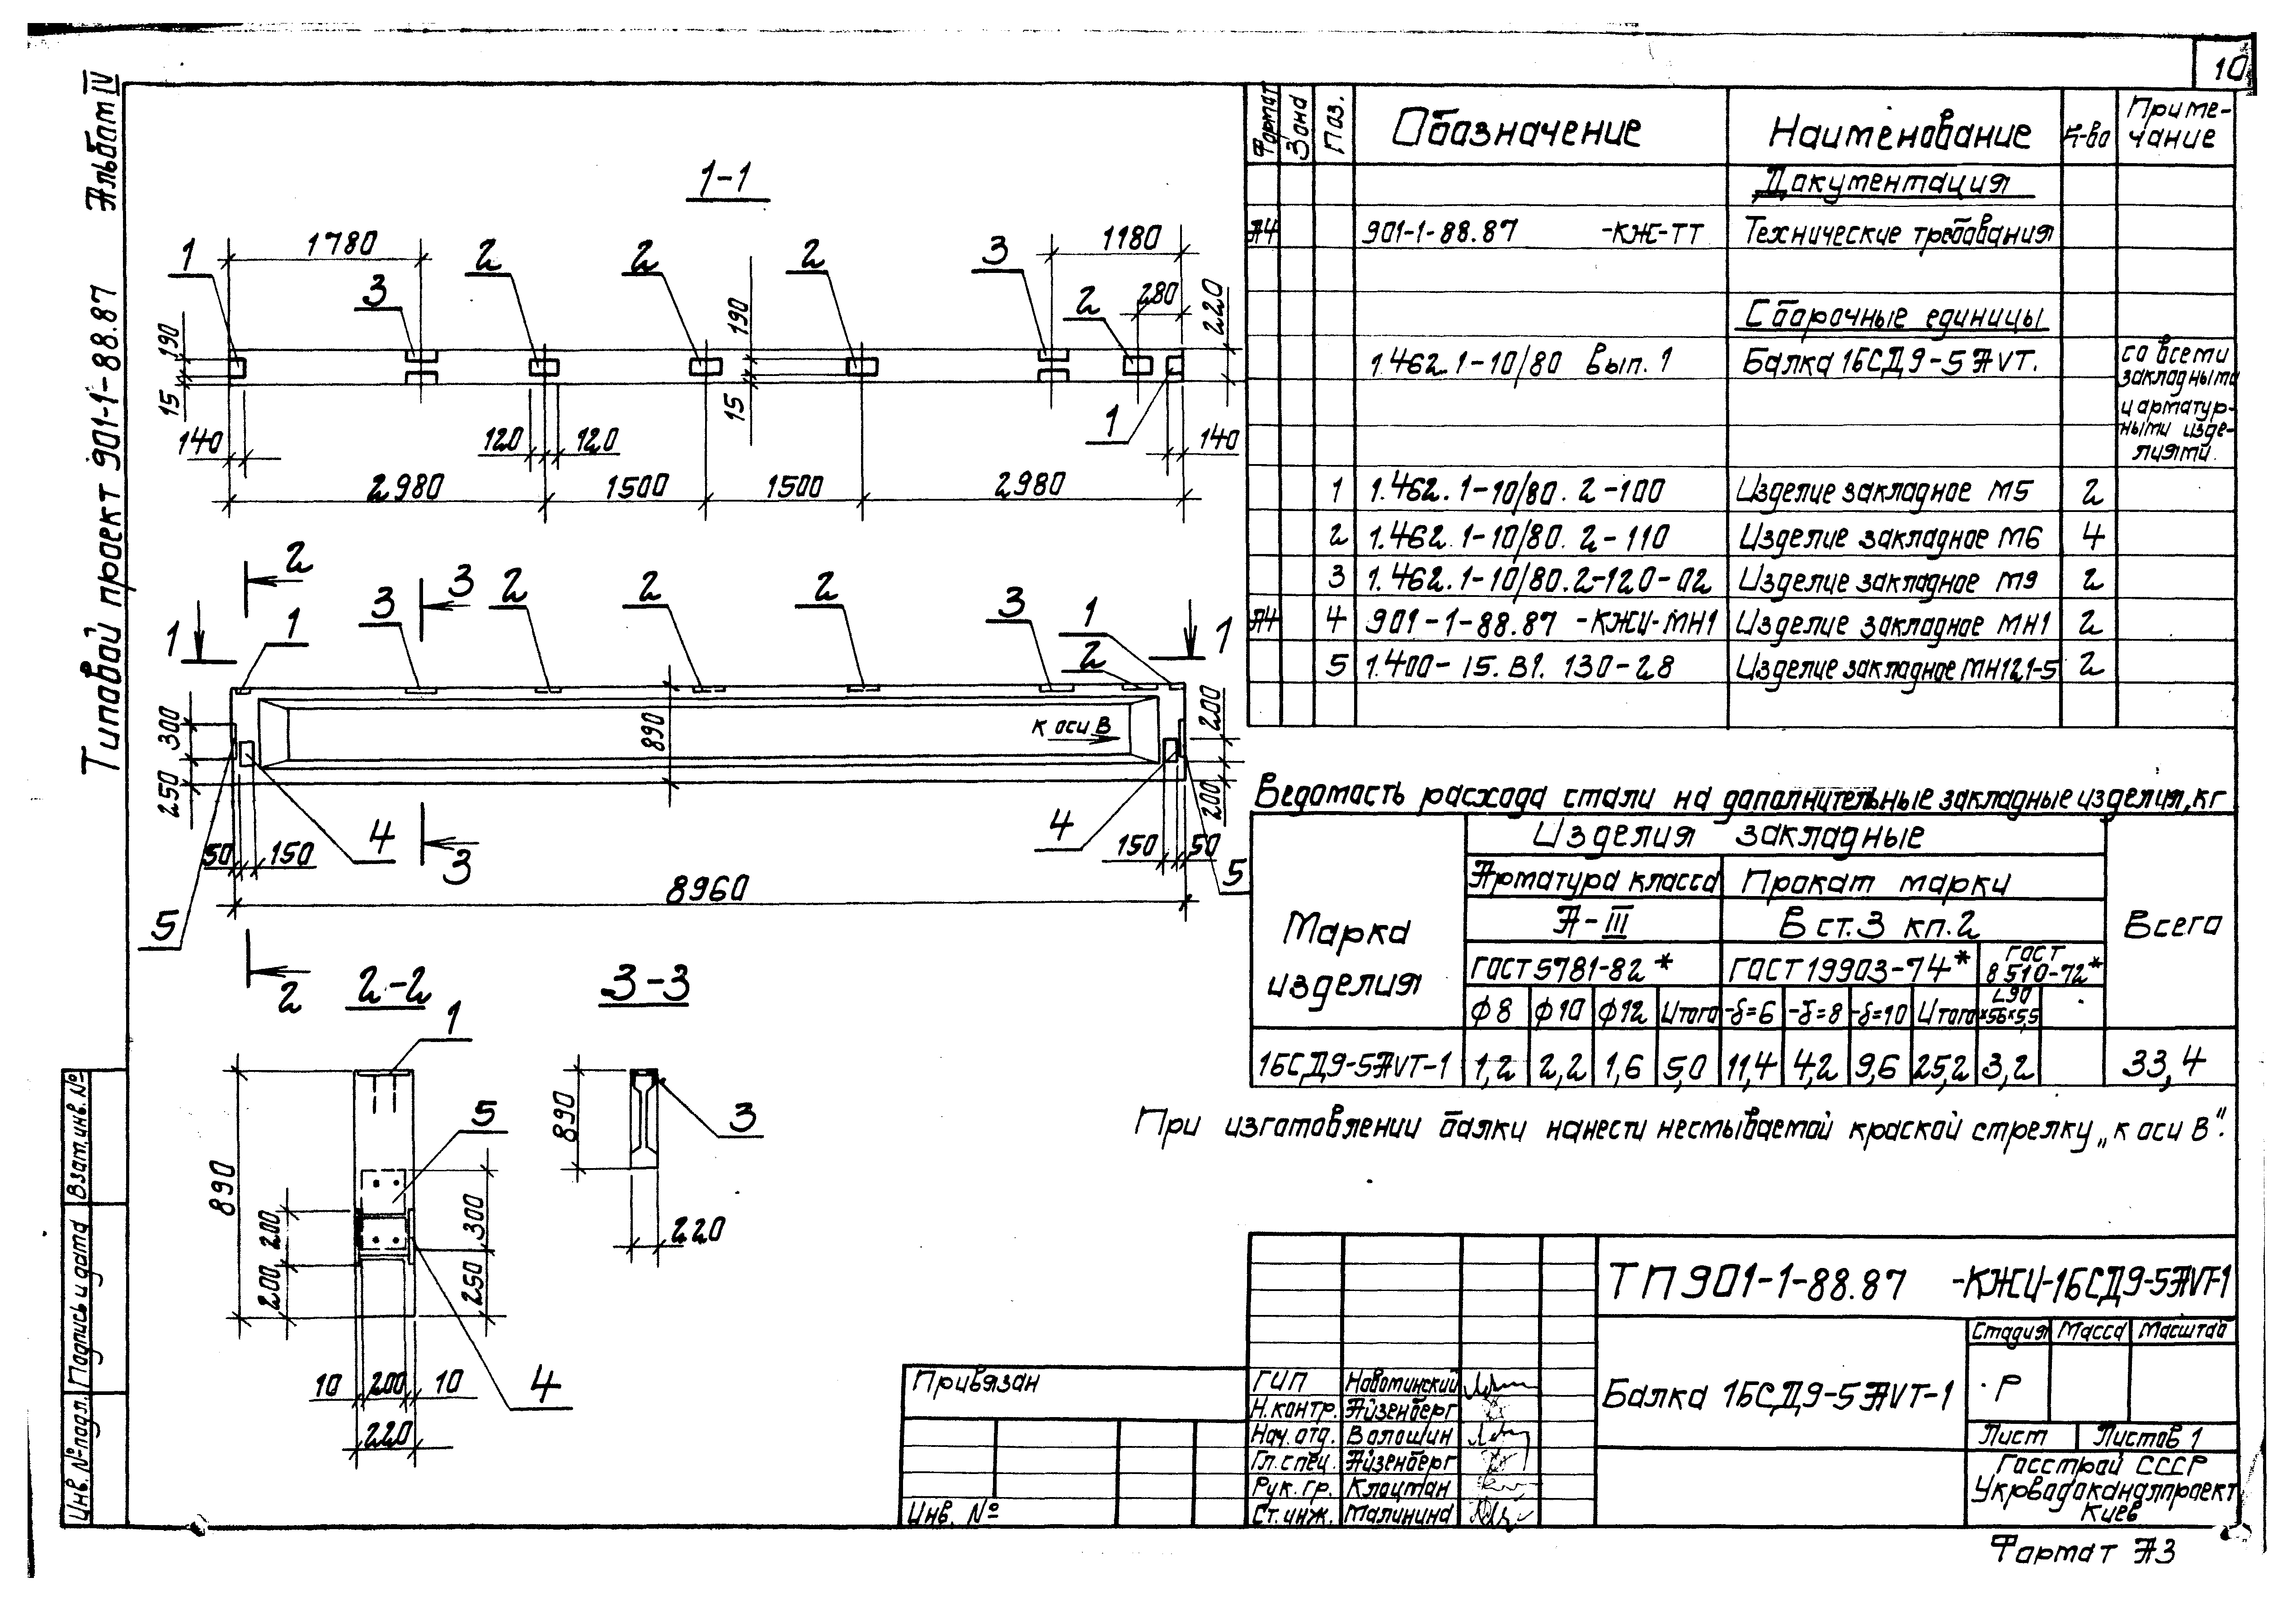 10
Типовой проект 901-1-88.87 Альбом IV
1-1
1780
1180
1
3
2
2
2
3
2
280
220
190
15
190
15
1
140
120
120
140
2980
1500
1500
2980
2
3
1
1
3
2
2
2
3
1
2
1
300
250
890
к оси В
200
200
50
150
4
3
4
150
50
5
8960
5
2
2-2
3-3
1
5
890
200
200
300
250
10
200
10
220
4
890
3
220
Формат
Зона
Поз.
Обозначение
Наименование
К-во
Приме-
чание
Документация
А4 901-1-88.87 -КЖ-ТТ Технические требования
Сборочные единицы
1.462.1-10/80 Вып. 1 Балка 1БСД9-5АVТ.
со всеми
закладными
и арматур-
ными изде-
лиями.
1 1.462.1-10/80.2-100 Изделие закладное М5 2
2 1.462.1-10/80.2-110 Изделие закладное М6 4
3 1.462.1-10/80.2-120-02 Изделие закладное М9 2
А4 4 901-1-88.87 -КЖИ-МН1 Изделие закладное МН1 2
5 1.400-15.В1.130-28 Изделие закладное МН121-5 2
Ведомость расхода стали на дополнительные закладные изделия, кг
Марка
изделия
Изделия закладные
Всего
Арматура класса
Прокат марки
А-III
В ст.3 кп.2
ГОСТ 5781-82*
ГОСТ 19903-74*
ГОСТ
8510-72*
ф8 ф10 ф12 Итого -δ=6 -δ=8 -δ=10 Итого L90
×56×5,5
1БСД9-5АVТ-1 1,2 2,2 1,6 5,0 11,4 4,2 9,6 25,2 3,2 33,4
При изготовлении балки нанести несмываемой краской стрелку „к оси В".
ТП901-1-88.87 -КЖИ-1БСД9-5АVТ-1
Балка 1БСД9-5АVТ-1
Стадия Масса Масштаб
Р
Лист Листов 1
Госстрой СССР
Укрводоканалпроект
Киев
ГИП Новотинский
Н.контр. Айзенберг
Нач. отд. Волошин
Гл. спец. Айзенберг
Рук. гр. Клоцман
Ст. инж. Малинина
Привязан
Инв. №
Инв. № подл.
Подпись и дата
Взам. инв. №
Формат А3